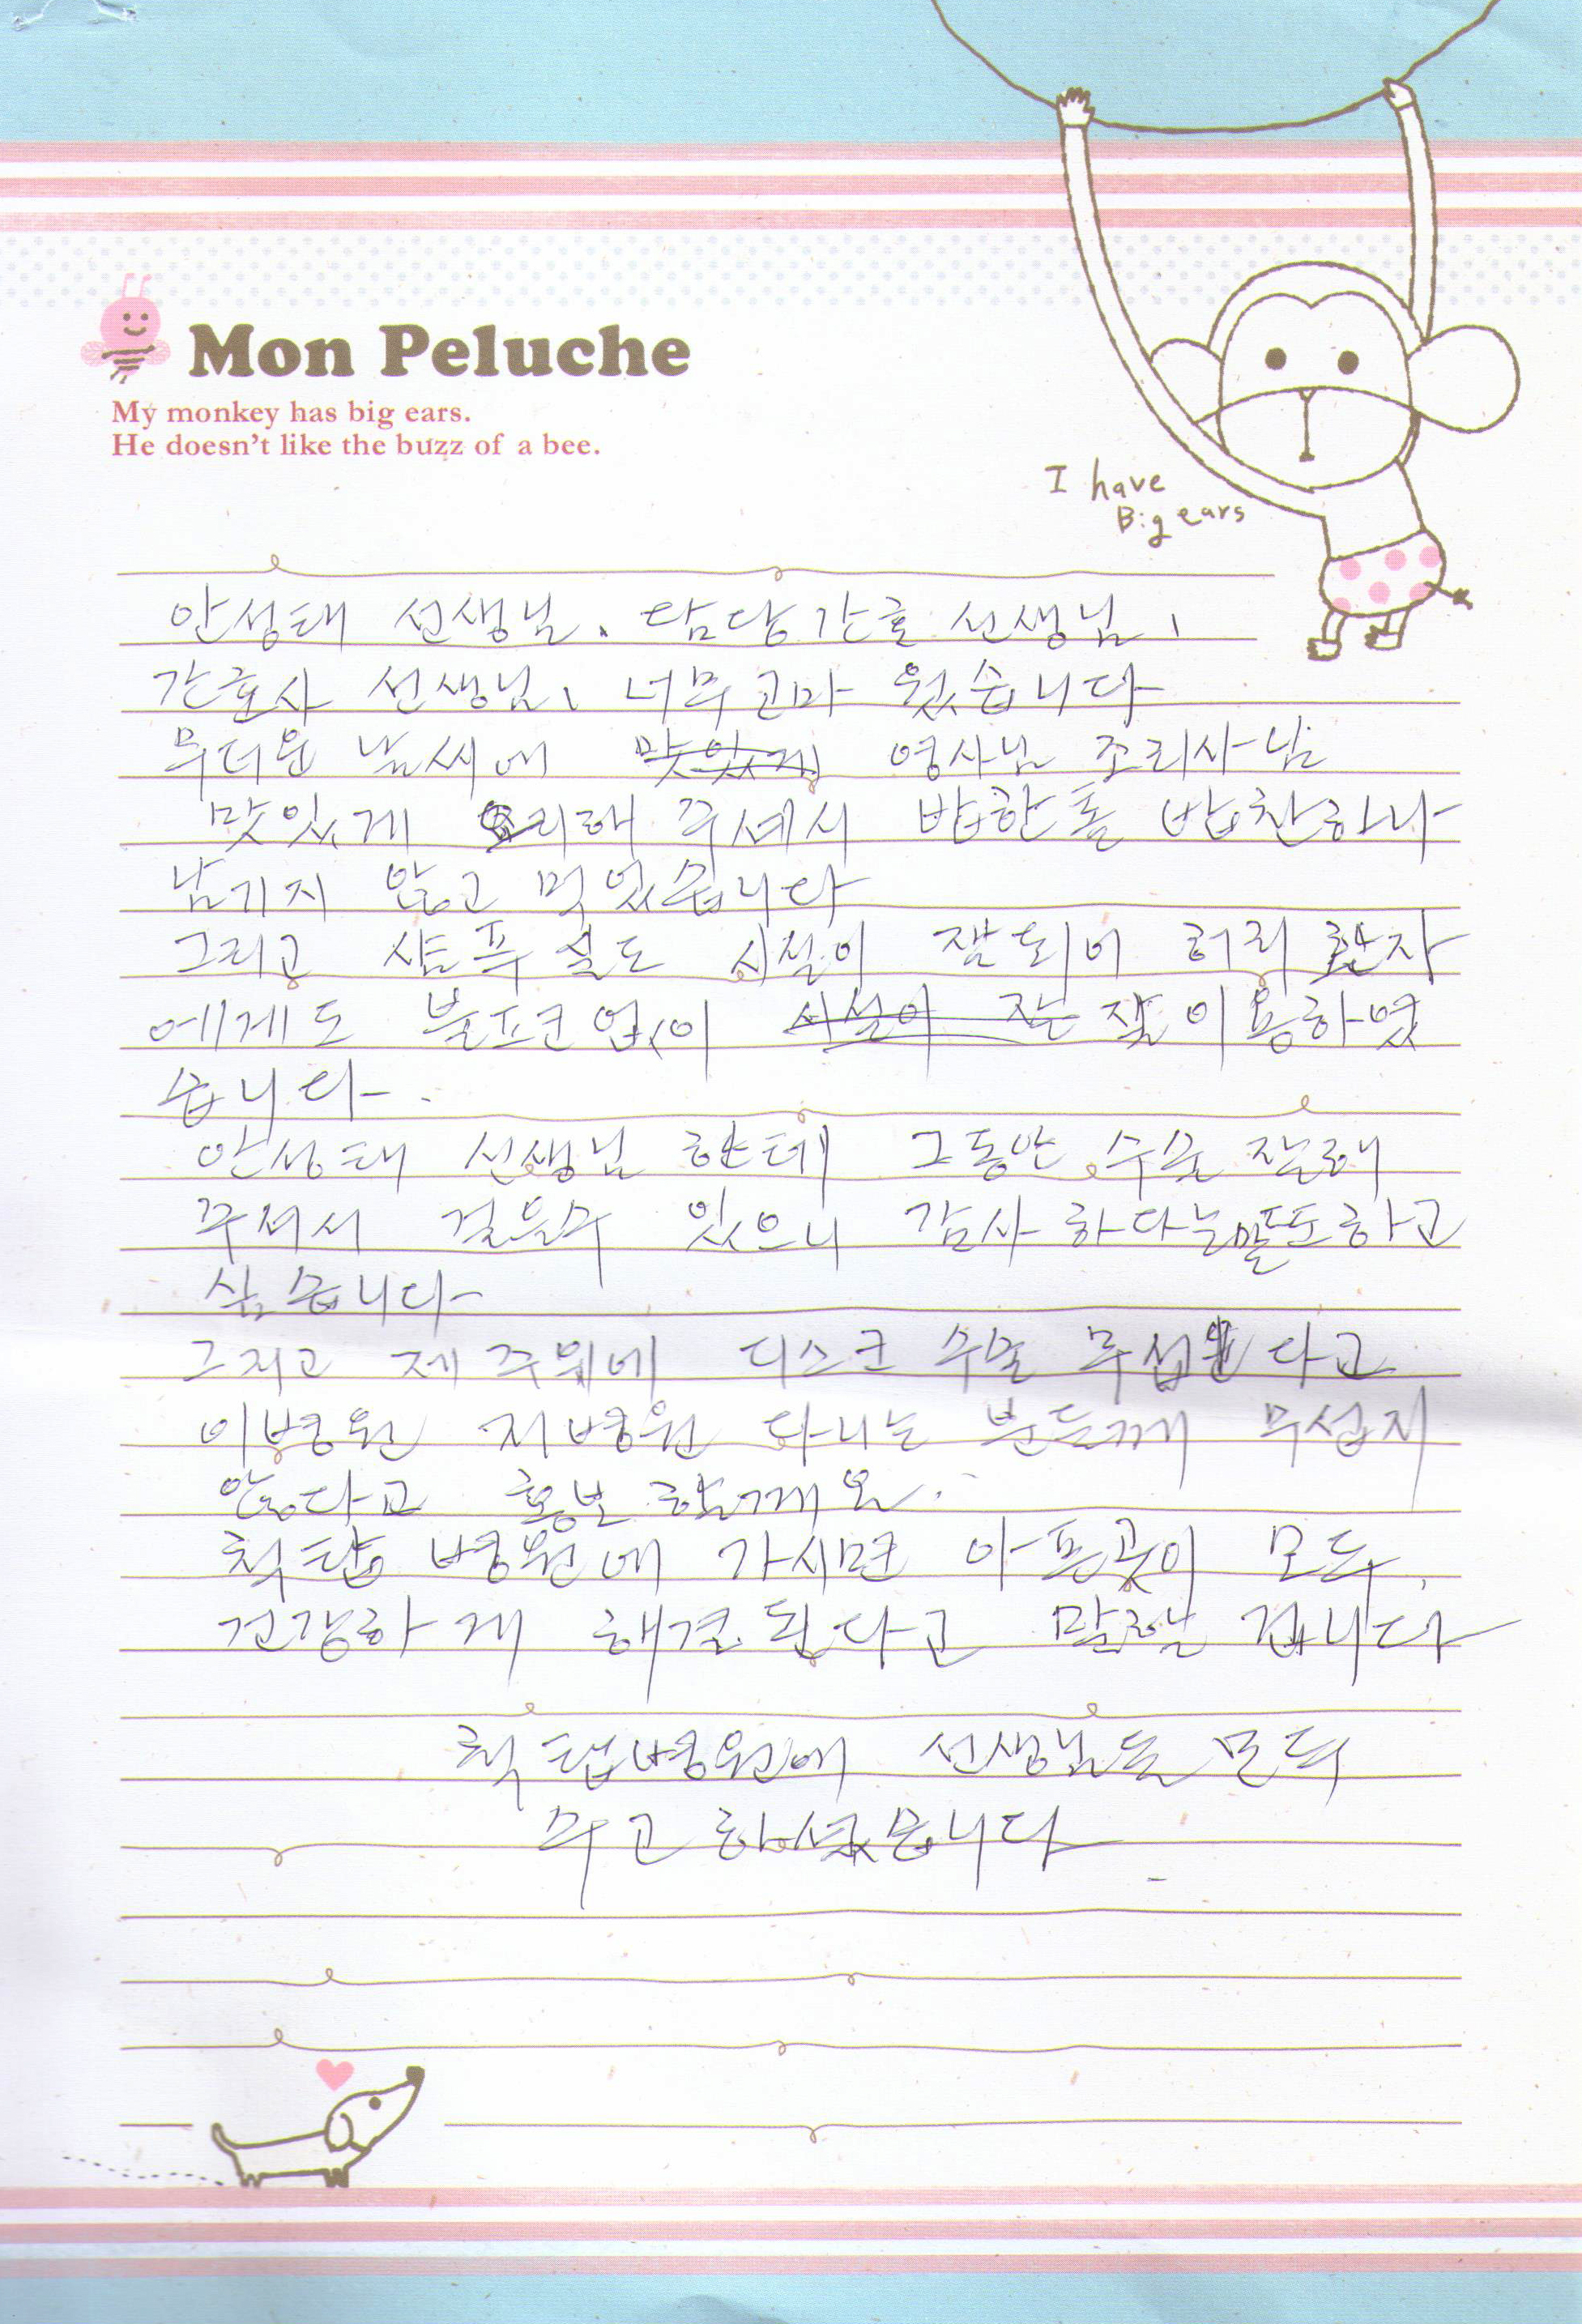 Mon Peluche
My monkey has big ears.
He doesn't like the buzz of a bee.
I have
Big ears
안성태 선생님, 담당간호 선생님,
간호사 선생님, 너무 고마 웠습니다
무더운 날씨에 맛있게 영사님 조리사님
맛있게 요리해 주셔서 밥한톨 반찬하나
남기지 않고 먹었습니다
그리고 샴푸실도 시설이 잘되어 허리 환자
에게도 불프코없이 시설이 자는 잘 이용하였
습니다.
안성태 선생님 한테 그동안 수술 잘해
주셔서 걸을수 있으니 감사 하다는말또하고
싶습니다
그리고 제 주위에 디스크 수술 무섭다고
이병원 저병원 다니는 분들께 무섭지
않다고 홍보 할께요.
척탑 병원에 가시면 아픈곳이 모두
건강하게 해결된다고 말할 겁니다
척탑병원에 선생님들 모두
수고 하셨습니다